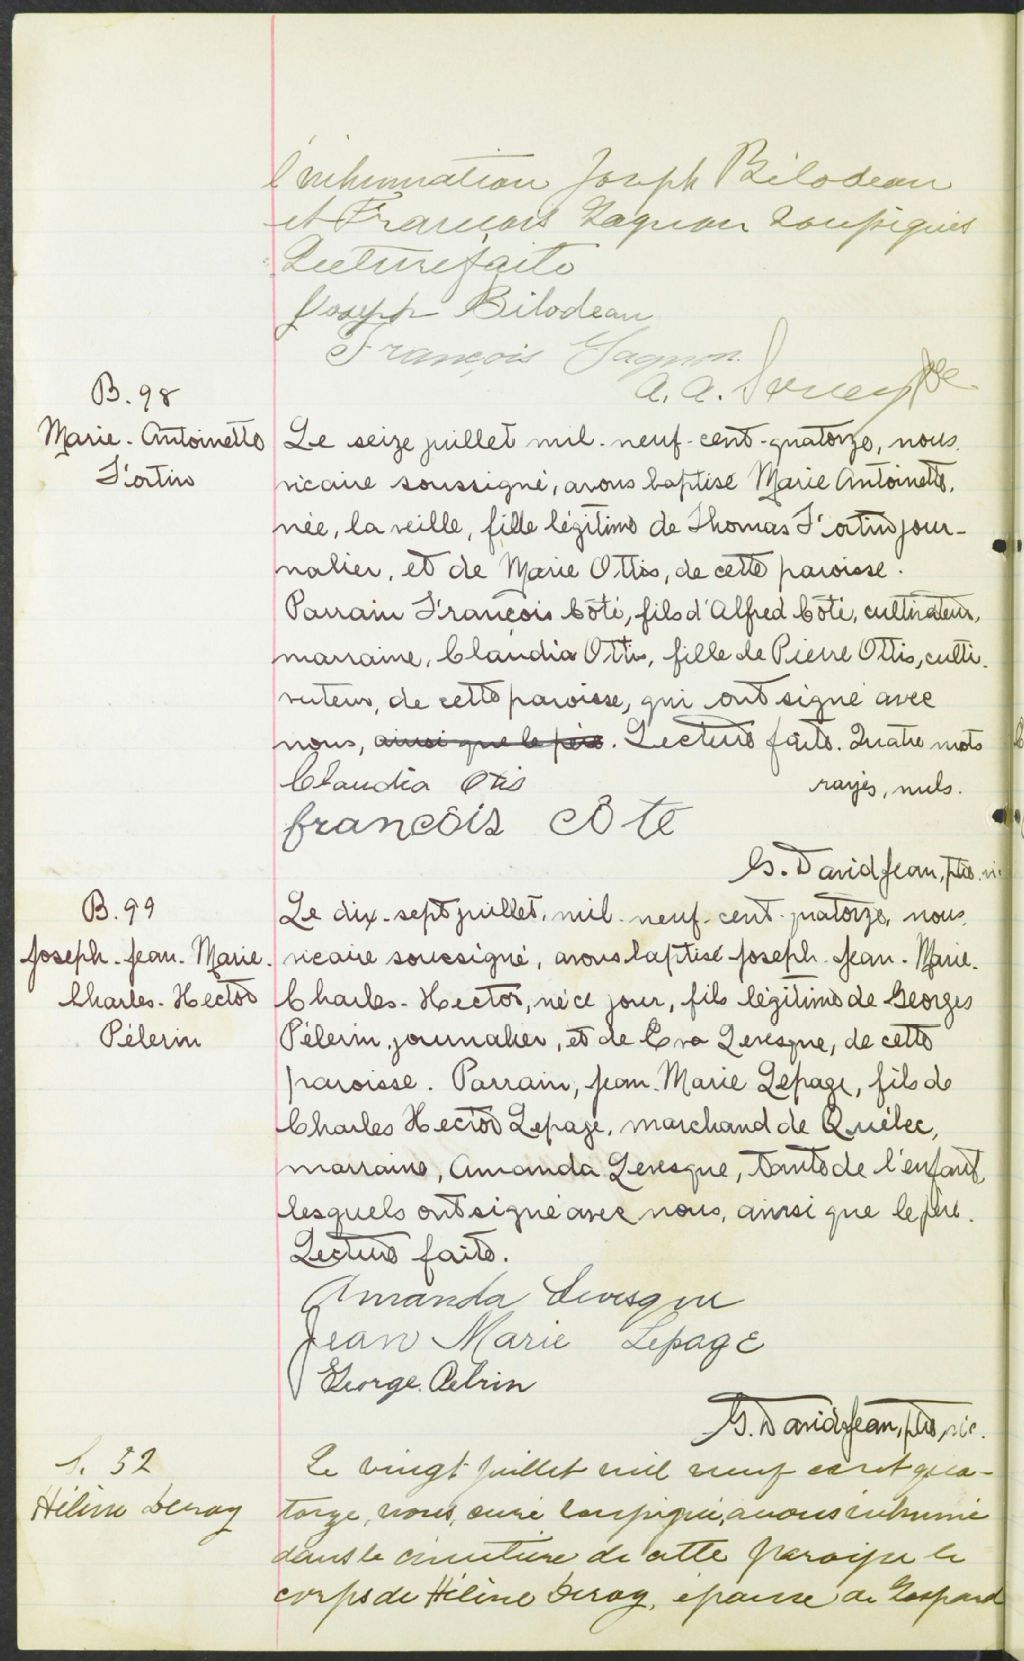 l'inhumation Joseph Bilodeau
et François Gagnon soussignés
Lecture faite
Joseph Bilodeau
François Gagnon
A. A.
B. 98
Marie-Antoinette
Fortin
Le seize juillet mil-neuf-cent-quatorze, nous,
vicaire soussigné, avons baptisé Marie Antoinette,
née, la veille, fille légitime de Thomas Fortin jour-
nalier, et de Marie Ottis, de cette paroisse.
Parrain François Côté, fils d'Alfred Côté, cultivateur,
marraine, Claudia Ottis, fille de Pierre Ottis, culti-
vateur, de cette paroisse, qui ont signé avec
nous, ainsi que le père. Lecture faite. Quatre mots
rayés, nuls.
Claudia Otis
francôis côte
G. David Jean, ptre. vic
B. 99
Joseph-Jean-Marie-
Charles-Hector
Pélerin
Le dix-sept juillet, mil-neuf-cent-quatorze, nous,
vicaire soussigné, avons baptisé Joseph-Jean-Marie-
Charles-Hector, né ce jour, fils légitime de Georges
Pélerin, journalier, et de Eva Levesque, de cette
paroisse. Parrain, Jean-Marie Lepage, fils de
Charles Hector Lepage, marchand de Québec,
marraine, Amanda Levesque, tante de l'enfant,
lesquels ont signé avec nous, ainsi que le père.
Lecture faite.
Amanda Levesque
Jean Marie Lepage
George Pelrin
G. David Jean, ptre, vic.
S. 52
Hélène Deroy
Le vingt juillet mil neuf cent qua-
torze, nous, curé soussigné, avons inhumé
dans le cimetière de cette paroisse le
corps de Hélène Deroy, épouse de Gaspard